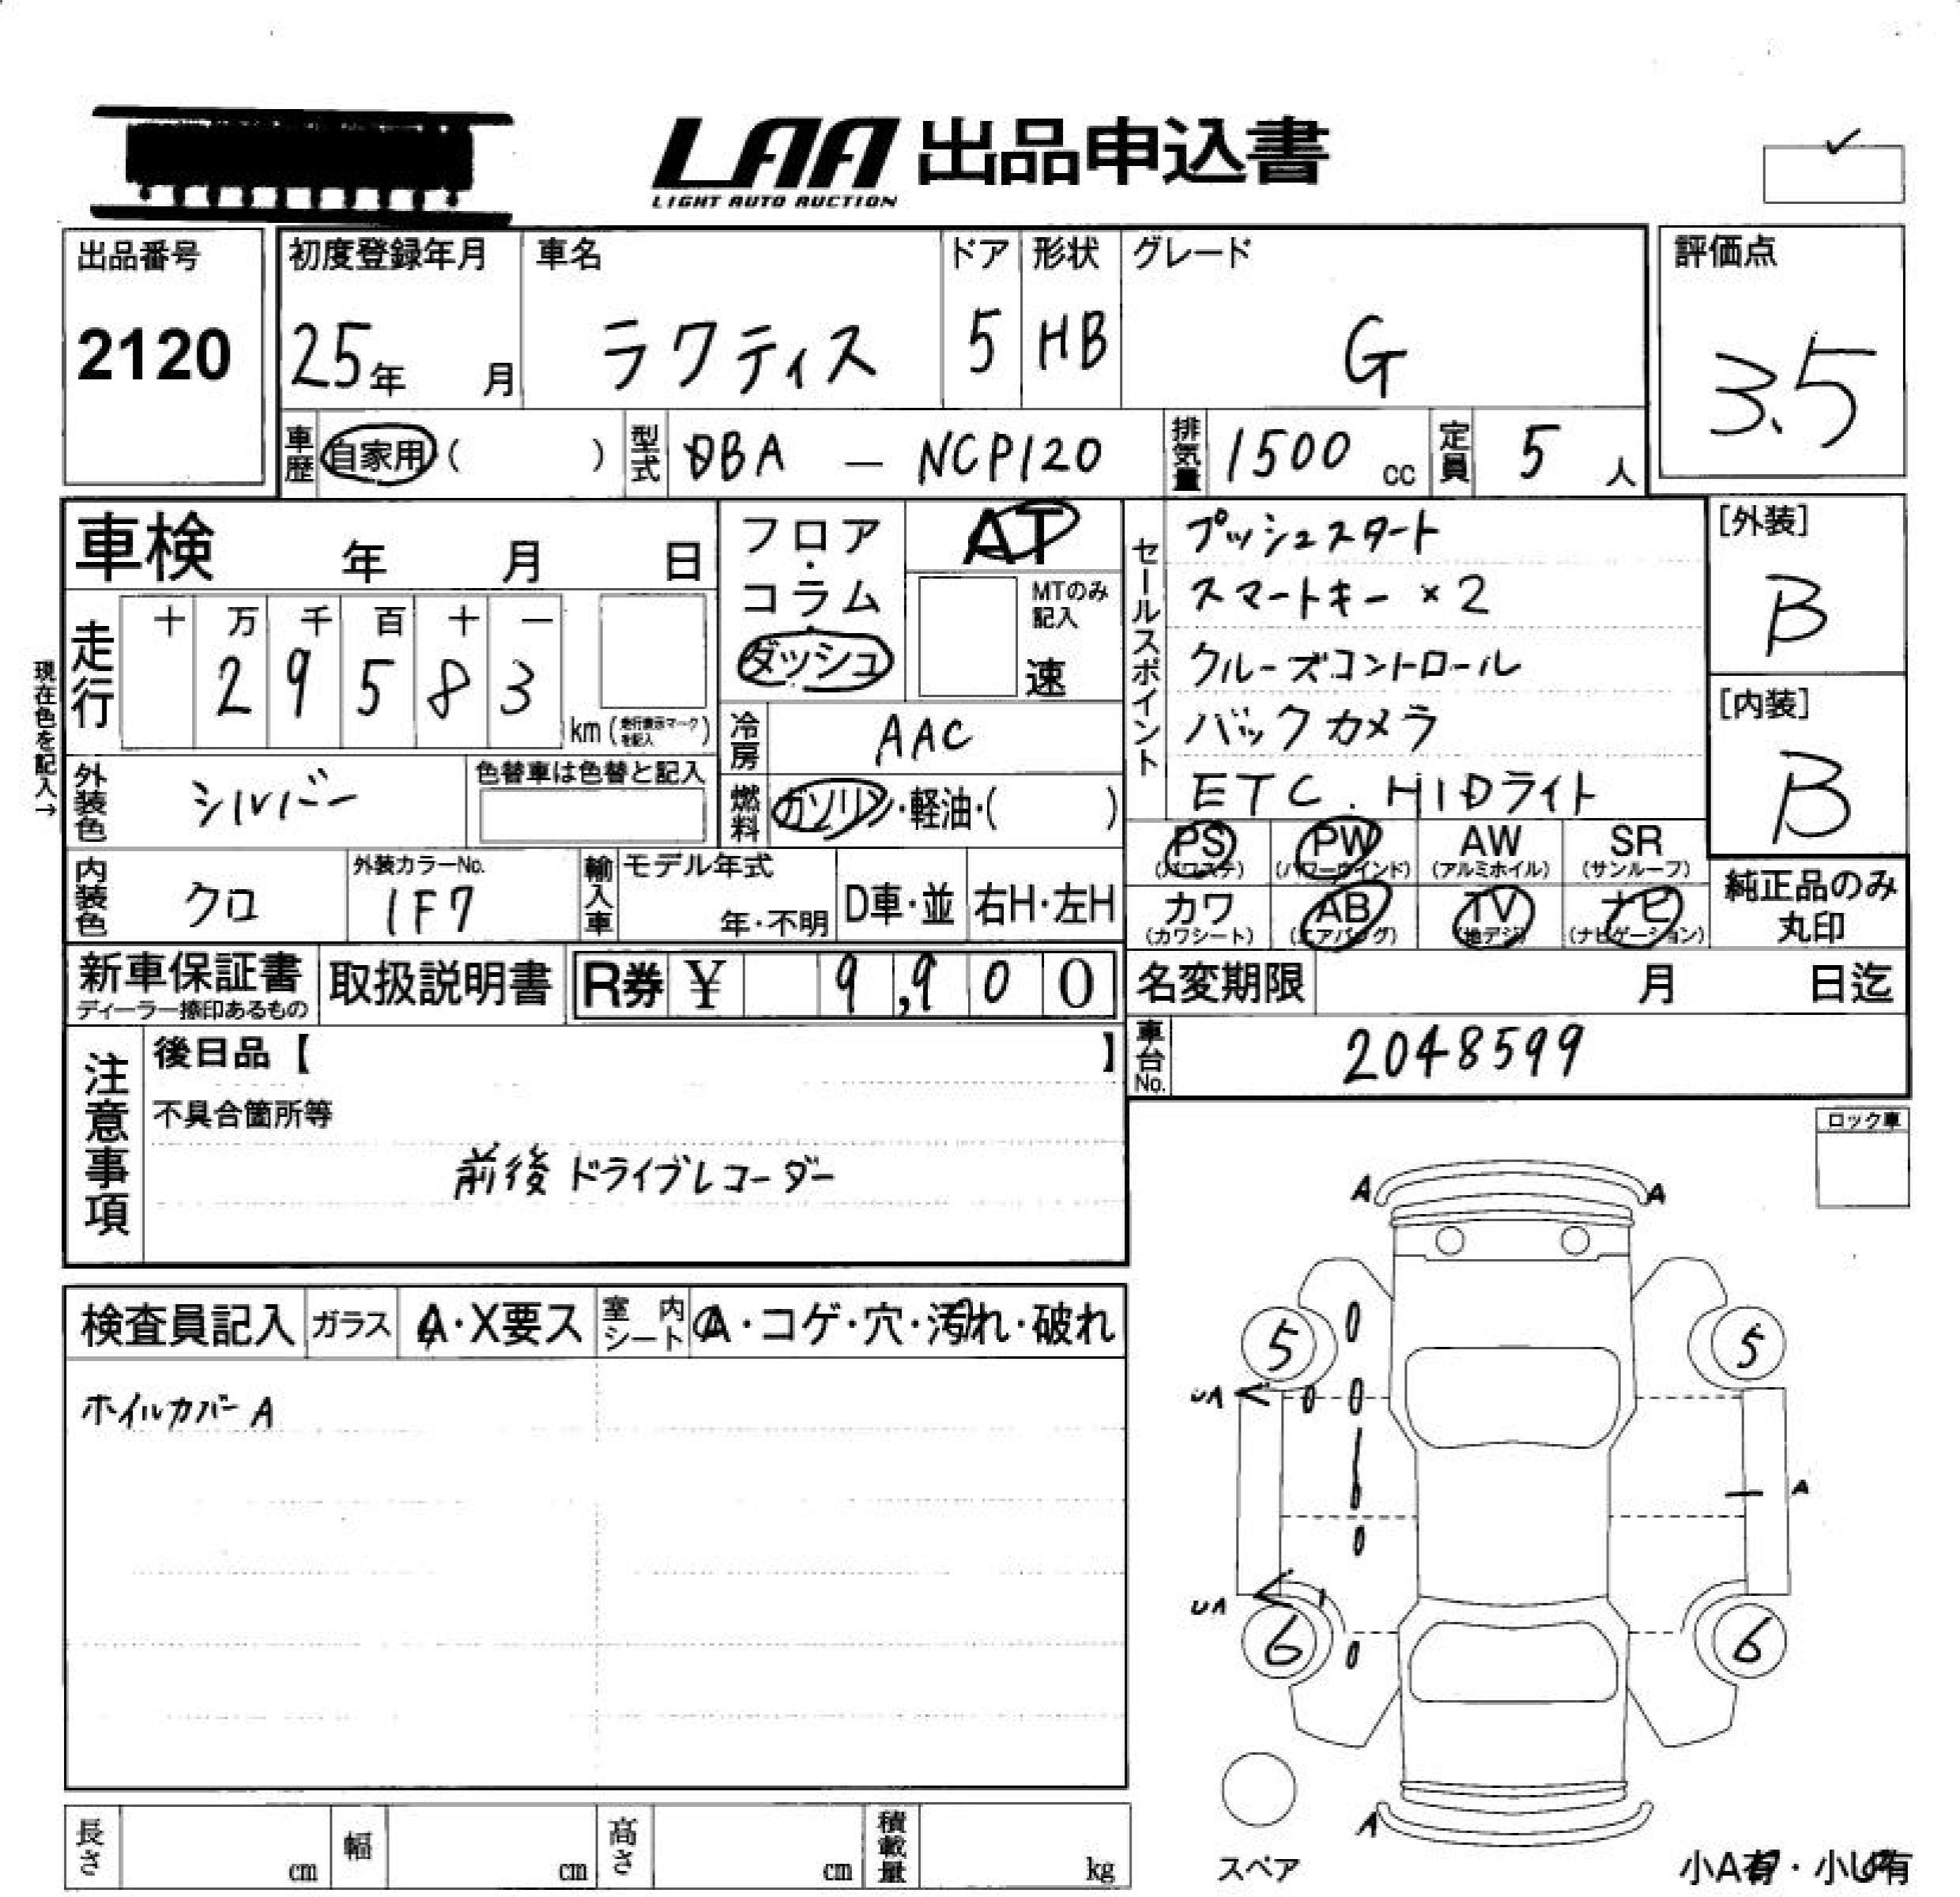 LAA 出品申込書
LIGHT AUTO AUCTION
出品番号 初度登録年月 車名 ドア 形状 グレード 評価点
2120 25年 月 ラクティス 5 HB G 3.5
車歴 自家用 ( ) 型式 DBA - NCP120 排気量 1500 cc 定員 5 人
車検 年 月 日
フロア・コラム・ダッシュ
AT
MTのみ記入
速
現在色を記入→
走行 十 万 千 百 十 一
2 9 5 8 3 km (走行表示マークを記入)
冷房 AAC
外装色 シルバー 色替車は色替と記入
燃料 ガソリン・軽油・( )
セールスポイント
プッシュスタート
スマートキー ×2
クルーズコントロール
バックカメラ
ETC. HIDライト
[外装]
B
[内装]
B
PS PW AW SR
(パワステ) (パワーウインド) (アルミホイル) (サンルーフ)
カワ AB TV ナビ
(カワシート) (エアバッグ) (地デジ) (ナビゲーション)
純正品のみ
丸印
内装色 クロ 外装カラーNo. 1F7 輸入車 モデル年式 年・不明 D車・並 右H・左H
新車保証書 取扱説明書 R券 ¥ 9,900
ディーラー捺印あるもの
名変期限 月 日迄
車台No. 2048599
注意事項
後日品【 】
不具合箇所等
前後 ドライブレコーダー
ロック車
検査員記入 ガラス A・X要ス 室内シート A・コゲ・穴・汚れ・破れ
ホイルカバー A
A A
5 5
UA
A
UA
6 6
A
スペア
小A有・小U有
長さ cm 幅 cm 高さ cm 積載量 kg